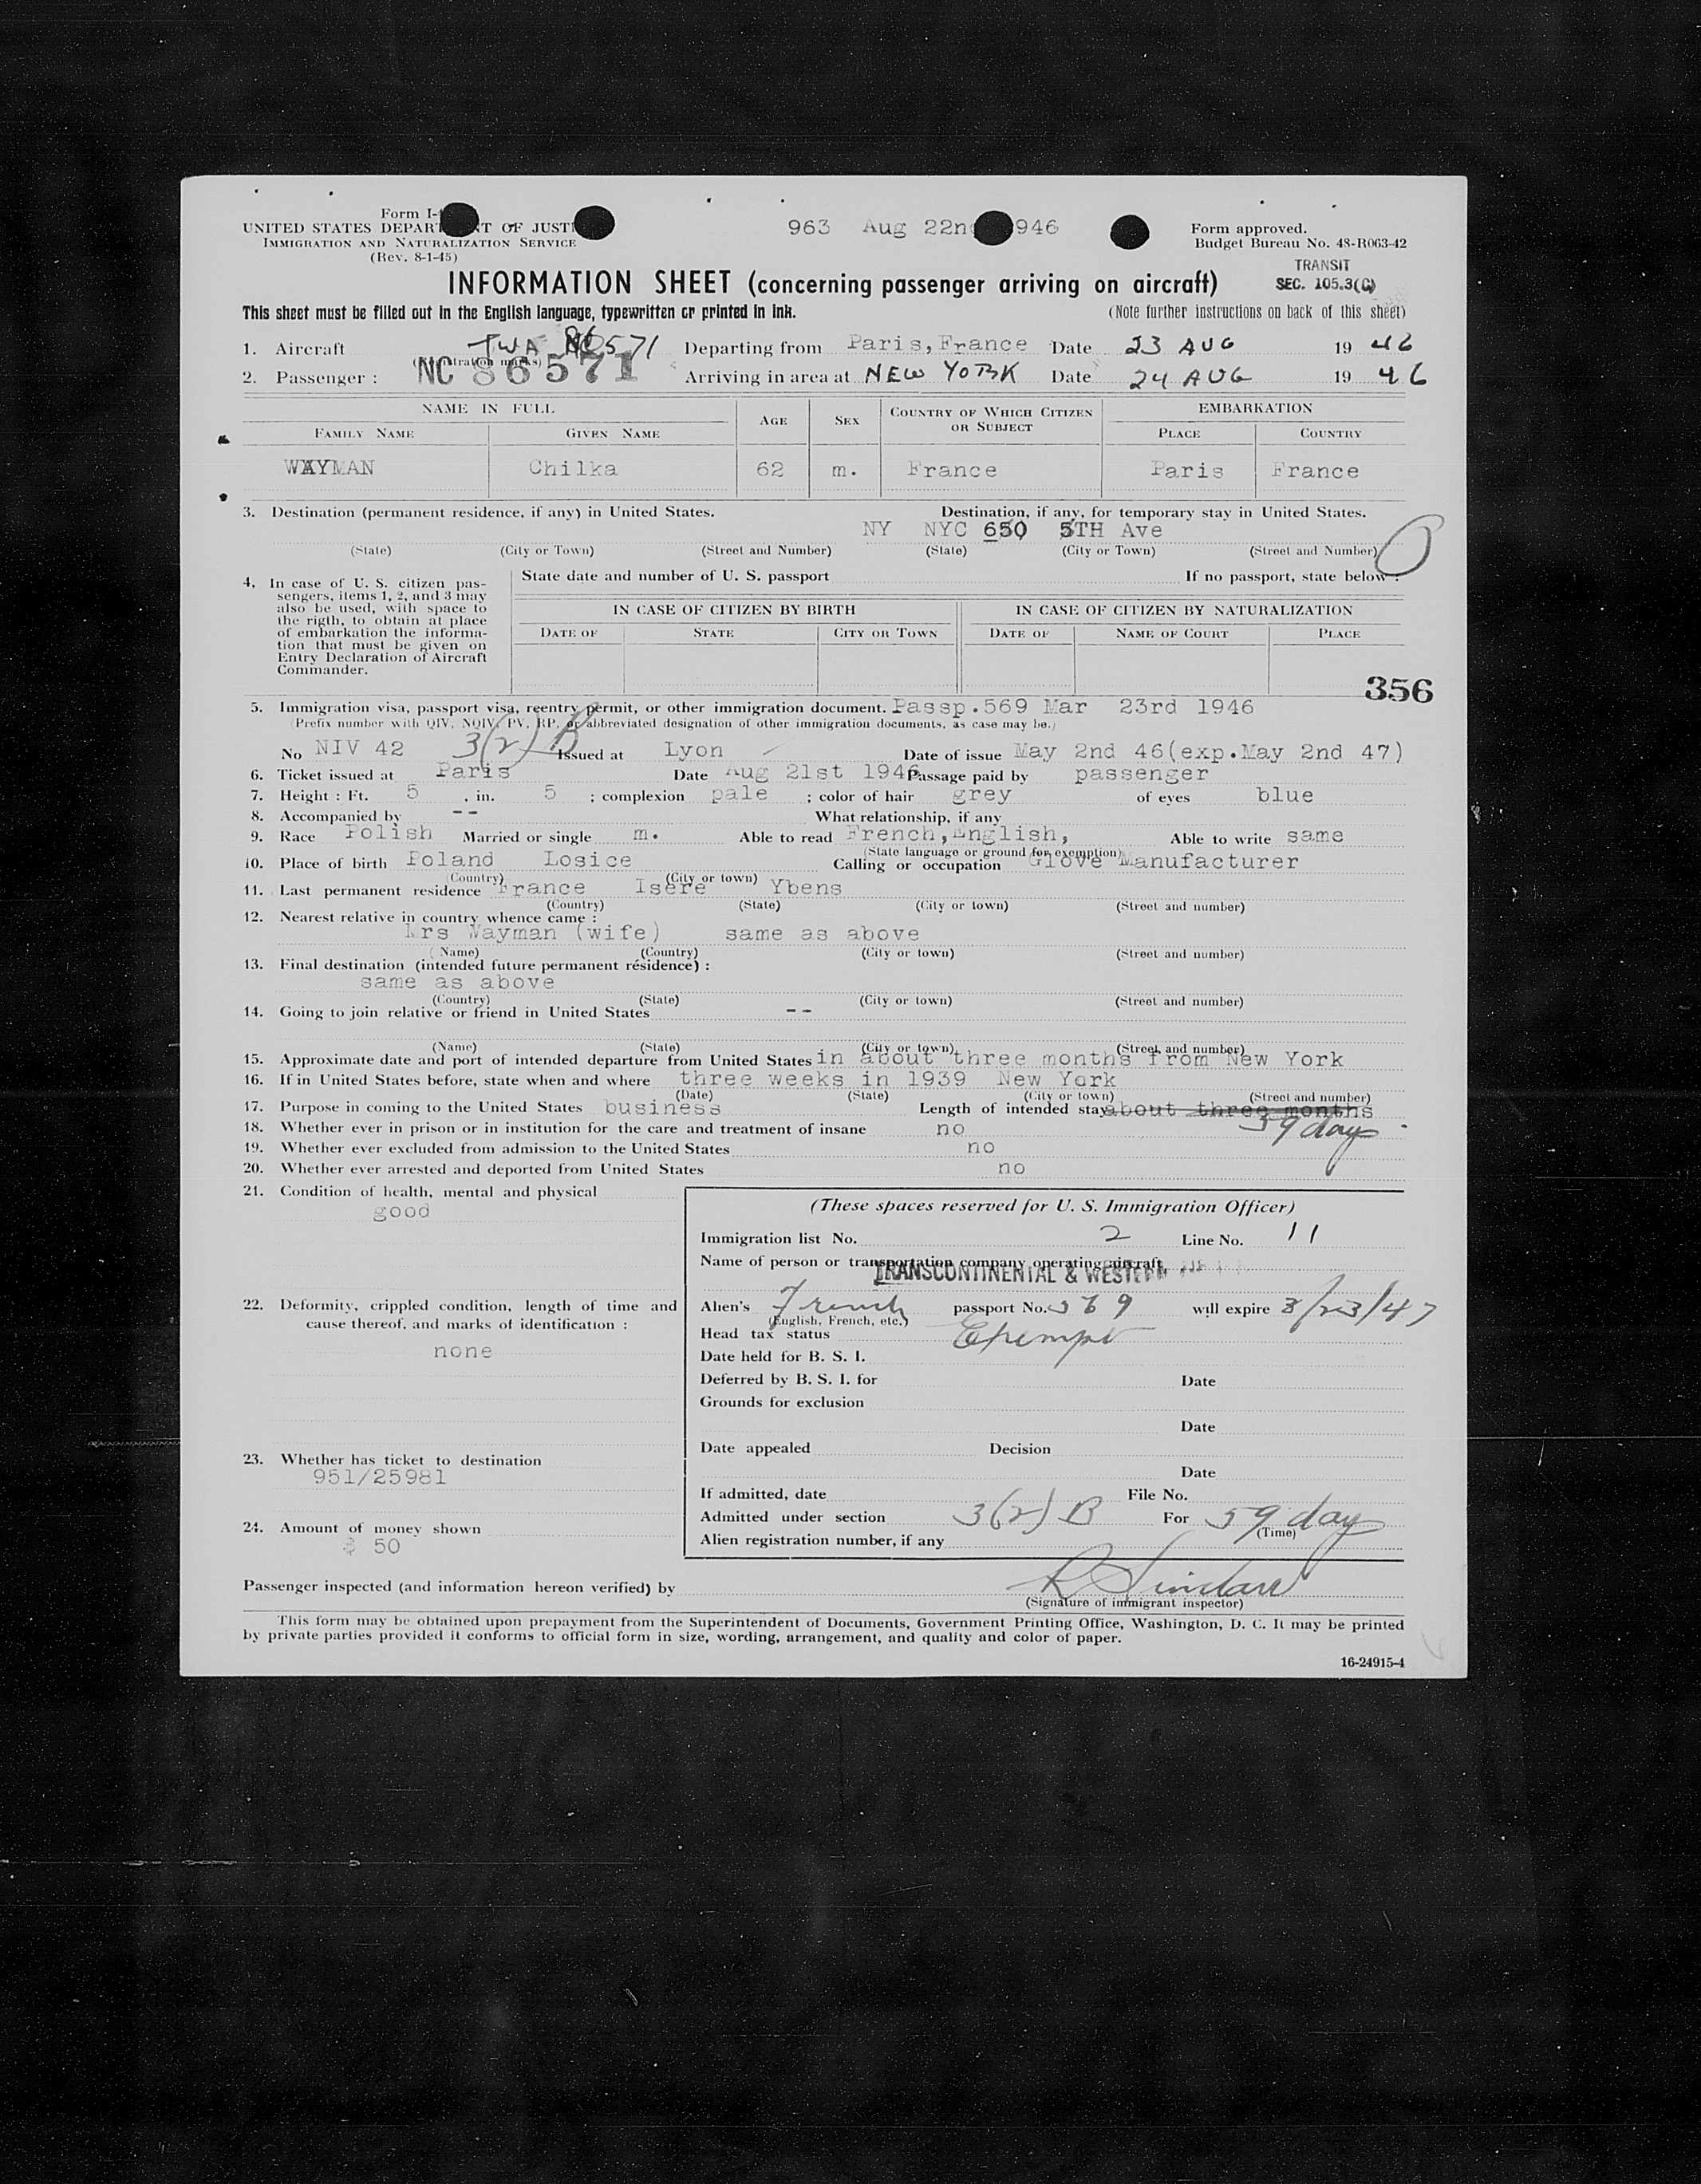 Form I-
UNITED STATES DEPAR T OF JUSTI
IMMIGRATION AND NATURALIZATION SERVICE
(Rev. 8-1-45)
963 Aug 22n 946
Form approved.
Budget Bureau No. 48-R063-42
TRANSIT
SEC. 105.3(C)
INFORMATION SHEET (concerning passenger arriving on aircraft)
This sheet must be filled out in the English language, typewritten or printed in ink.
(Note further instructions on back of this sheet)
1. Aircraft TWA 86571 Departing from Paris, France Date 23 AUG 19 46
2. Passenger : NC 86571 Arriving in area at NEW YORK Date 24 AUG 19 46
NAME IN FULL AGE SEX COUNTRY OF WHICH CITIZEN OR SUBJECT EMBARKATION
FAMILY NAME GIVEN NAME PLACE COUNTRY
WAYMAN Chilka 62 m. France Paris France
3. Destination (permanent residence, if any) in United States. Destination, if any, for temporary stay in United States.
NY NYC 650 5TH Ave
(State) (City or Town) (Street and Number) (State) (City or Town) (Street and Number)
4. In case of U. S. citizen pas-
sengers, items 1, 2, and 3 may
also be used, with space to
the rigth, to obtain at place
of embarkation the informa-
tion that must be given on
Entry Declaration of Aircraft
Commander.
State date and number of U. S. passport If no passport, state below :
IN CASE OF CITIZEN BY BIRTH IN CASE OF CITIZEN BY NATURALIZATION
DATE OF STATE CITY OR TOWN DATE OF NAME OF COURT PLACE
356
5. Immigration visa, passport visa, reentry permit, or other immigration document. Passp.569 Mar 23rd 1946
(Prefix number with QIV, NQIV, PV, RP, or abbreviated designation of other immigration documents, as case may be.)
No NIV 42 3(2) B Issued at Lyon Date of issue May 2nd 46(exp.May 2nd 47)
6. Ticket issued at Paris Date Aug 21st 1946 Passage paid by passenger
7. Height : Ft. 5 , in. 5 ; complexion pale ; color of hair grey of eyes blue
8. Accompanied by -- What relationship, if any
9. Race Polish Married or single m. Able to read French,English, Able to write same
(State language or ground for exemption)
10. Place of birth Poland Losice Calling or occupation Glove Manufacturer
(Country) (City or town)
11. Last permanent residence France Isere Ybens
(Country) (State) (City or town) (Street and number)
12. Nearest relative in country whence came :
Mrs Wayman (wife) same as above
(Name) (Country) (City or town) (Street and number)
13. Final destination (intended future permanent résidence) :
same as above
(Country) (State) (City or town) (Street and number)
14. Going to join relative or friend in United States --
(Name) (State) (City or town) (Street and number)
15. Approximate date and port of intended departure from United States in about three months from New York
16. If in United States before, state when and where three weeks in 1939 New York
(Date) (State) (City or town) (Street and number)
17. Purpose in coming to the United States business Length of intended stay about three months
59 days
18. Whether ever in prison or in institution for the care and treatment of insane no
19. Whether ever excluded from admission to the United States no
20. Whether ever arrested and deported from United States no
21. Condition of health, mental and physical
good
(These spaces reserved for U. S. Immigration Officer)
Immigration list No. 2 Line No. 11
Name of person or transportation company operating aircraft
TRANSCONTINENTAL & WESTERN
22. Deformity, crippled condition, length of time and
cause thereof, and marks of identification :
none
Alien's French passport No. 569 will expire 3/23/47
(English, French, etc.)
Head tax status Exempt
Date held for B. S. I.
Deferred by B. S. I. for Date
Grounds for exclusion
Date
Date appealed Decision
Date
23. Whether has ticket to destination
951/25981
If admitted, date File No.
Admitted under section 3(2) B For 59 days
(Time)
Alien registration number, if any
24. Amount of money shown
$ 50
Passenger inspected (and information hereon verified) by
(Signature of immigrant inspector)
This form may be obtained upon prepayment from the Superintendent of Documents, Government Printing Office, Washington, D. C. It may be printed
by private parties provided it conforms to official form in size, wording, arrangement, and quality and color of paper.
16-24915-4